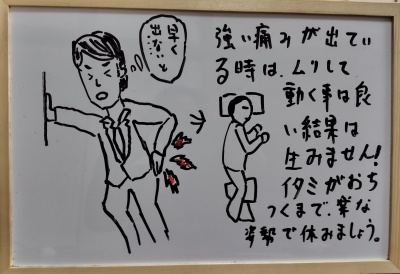 早く
出ないと
強い痛みが出てい
る時は、ムリして
動く事は良
い結果は
生みません!
イタミがおち
つくまで、楽な
姿勢で休みましょう。